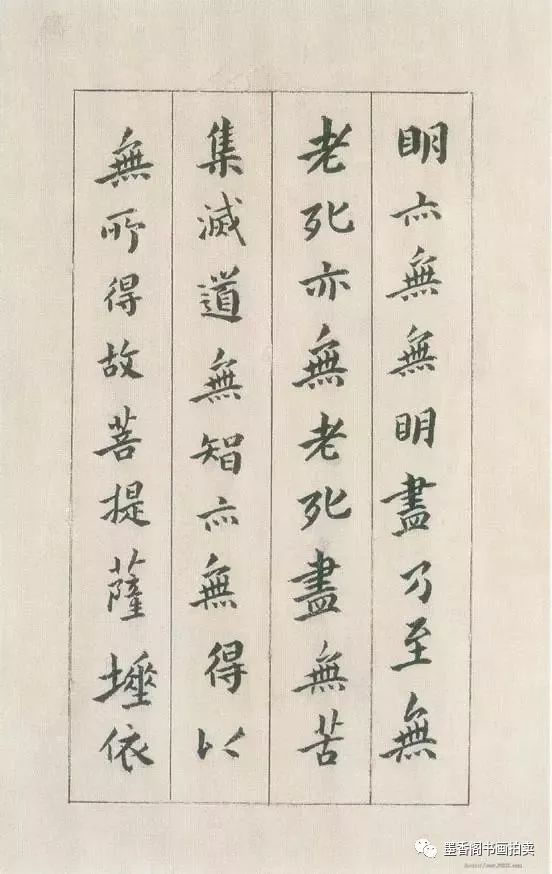 明亦無無明盡乃至無
老死亦無老死盡無苦
集滅道無智亦無得以
無所得故菩提薩埵依
墨香阁书画拍卖